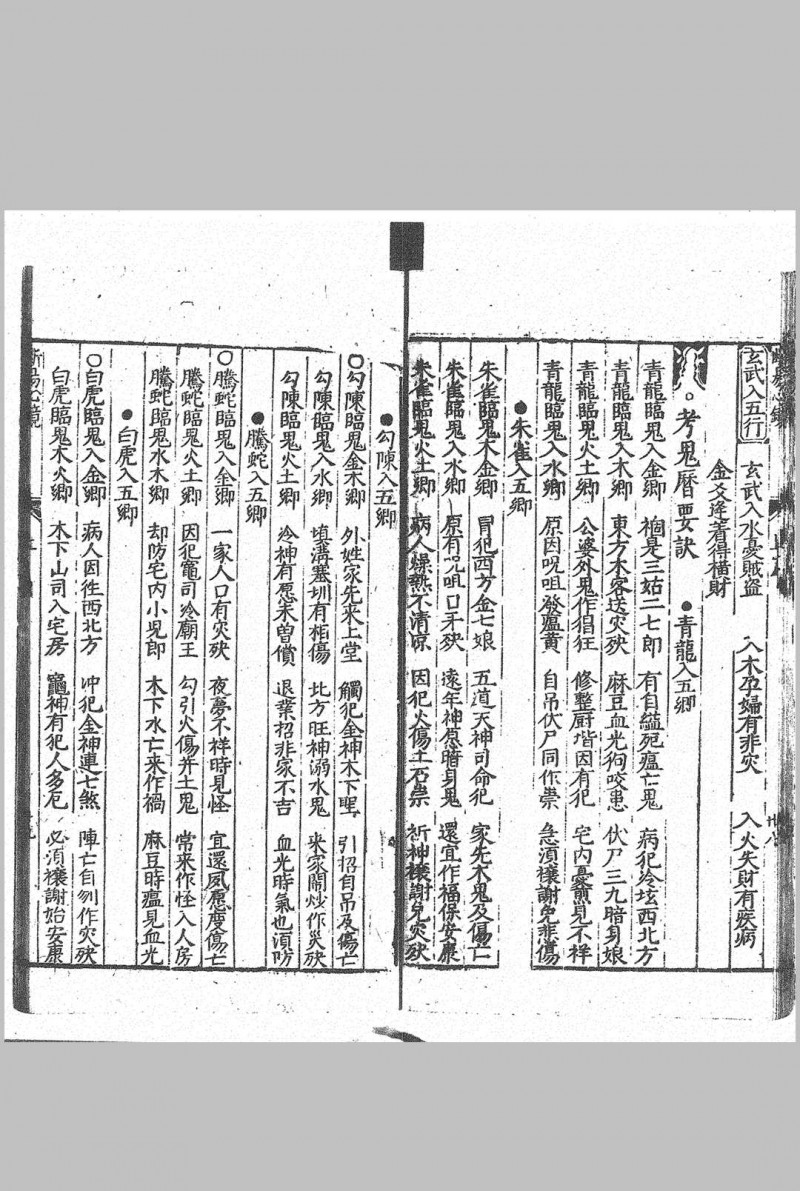 玄武入五行　玄武入水憂賊盜　入木孕婦有非灾　入火失財有疾病
金爻逢著得橫財
考鬼曆要訣　●青龍入五鄉
青龍臨鬼入金鄉　廂是三姑二七郎　有自縊死瘟亡鬼　病犯冷坛西北方
青龍臨鬼入木鄉　東方木客送灾殃　麻豆血光狗咬患　伏尸三九暗身娘
青龍臨鬼火土鄉　公婆外鬼作猖狂　修整厨堦因有犯　宅內憂煎見不祥
青龍臨鬼入水鄉　原因呪咀發瘟黃　自吊伏尸同作祟　急須禳謝免悲傷
●朱雀入五鄉
朱雀臨鬼木金鄉　冐犯西方金七娘　五道天神司命犯　家先木鬼及傷亡
朱雀臨鬼入水鄉　原有呪咀口牙殃　遠年神愿暗身鬼　還宜作福保安康
朱雀臨鬼火土鄉　病人燥熱不清凉　因犯火傷土石祟　祈神禳謝免灾殃
●勾陳入五鄉
○勾陳臨鬼金木鄉　外姓家先来上堂　觸犯金神木下聖　引招自吊及傷亡
勾陳臨鬼入水鄉　填溝塞圳有相傷　北方旺神溺水鬼　来家鬧炒作災殃
勾陳臨鬼火土鄉　冷神有愿未曾償　退業招非家不吉　血光時氣也須防
●騰蛇入五鄉
○騰蛇臨鬼入金鄉　一家人口有灾殃　夜夢不祥時見怪　宜還夙愿度傷亡
騰蛇臨鬼火土鄉　因犯竈司冷廟王　勾引火傷并土鬼　常来作怪入人房
騰蛇臨鬼水木鄉　却防宅內小児郎　木下水亡来作禍　麻豆時瘟見血光
●白虎入五鄉
○白虎臨鬼入金鄉　病人因徃西北方　冲犯金神連七煞　陣亡自刎作灾殃
白虎臨鬼木火鄉　木下山司入宅房　竈神有犯人多厄　必須禳謝始安康